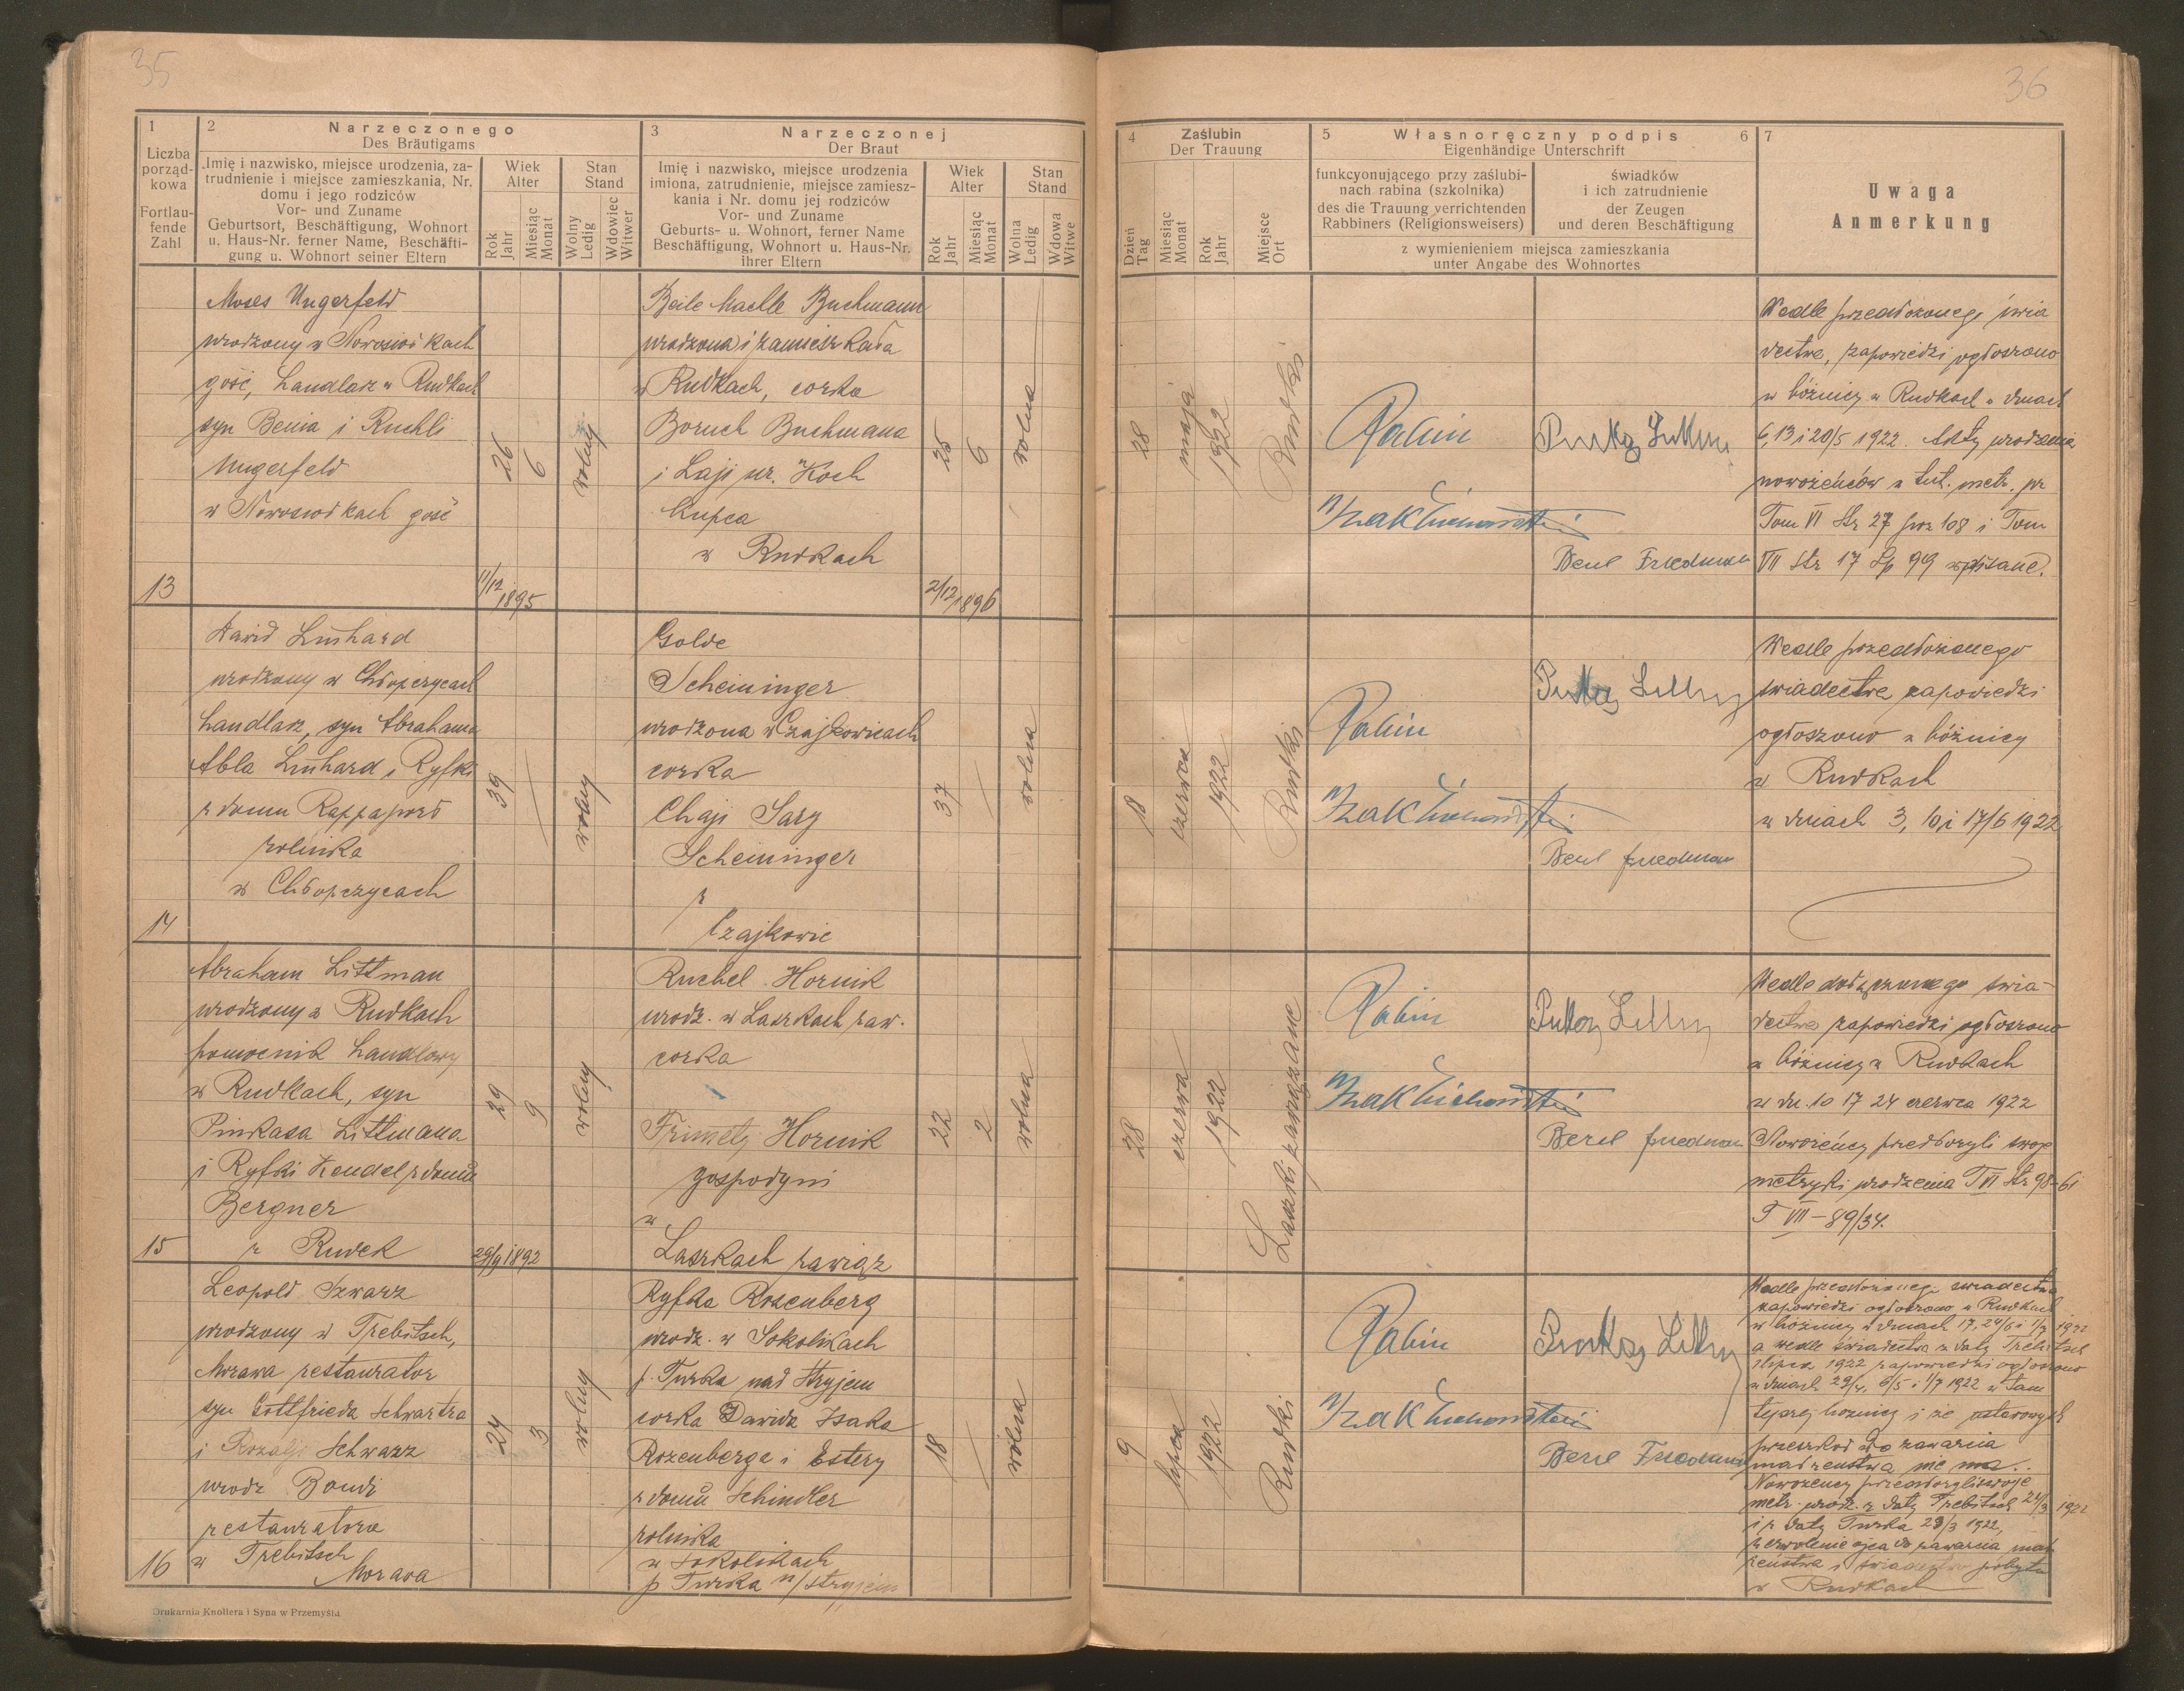 35
36
1
Liczba
porząd-
kowa
Fortlau-
fende
Zahl
2
Narzeczonego
Des Bräutigams
Imię i nazwisko, miejsce urodzenia, za-
trudnienie i miejsce zamieszkania, Nr.
domu i jego rodziców
Vor- und Zuname
Geburtsort, Beschäftigung, Wohnort
u. Haus-Nr. ferner Name, Beschäfti-
gung u. Wohnort seiner Eltern
Wiek
Alter
Rok
Jahr
Miesiąc
Monat
Stan
Stand
Wolny
Ledig
Wdowiec
Witwer
3
Narzeczonej
Der Braut
Imię i nazwisko, miejsce urodzenia
imiona, zatrudnienie, miejsce zamiesz-
kania i Nr. domu jej rodziców
Vor- und Zuname
Geburts- u. Wohnort, ferner Name
Beschäftigung, Wohnort u. Haus-Nr.
ihrer Eltern
Wiek
Alter
Rok
Jahr
Miesiąc
Monat
Stan
Stand
Wolna
Ledig
Wdowa
Witwe
4
Zaślubin
Der Trauung
Dzień
Tag
Miesiąc
Monat
Rok
Jahr
Miejsce
Ort
5
Własnoręczny podpis
6
Eigenhändige Unterschrift
funkcyonującego przy zaślubi-
nach rabina (szkolnika)
des die Trauung verrichtenden
Rabbiners (Religionsweisers)
świadków
i ich zatrudnienie
der Zeugen
und deren Beschäftigung
z wymienieniem miejsca zamieszkania
unter Angabe des Wohnortes
7
Uwaga
Anmerkung
13
Moses Ungerfeld
urodzony w Nowosiołkach
gość, handlarz w Rudkach
syn Benia i Ruchli
Ungerfeld
w Nowosiołkach gość
26
6
11/12 1895
wolny
Beile Machle Buchmann
urodzona i zamieszkała
w Rudkach, corka
Boruch Buchmana
i Laji ur. Koch
kupca
w Rudkach
25
6
2/12 1896
wolna
28
maja
1922
Rudki
Rabin
Berl Friedman
Wedle przedłożonego świa
dectwa, zapowiedzi ogłoszono
w bóżnicy w Rudkach w dniach
6, 13 i 20/5 1922. Akty urodzenia
nowożeńców w tut. metr. pr
Tom VI Str 27 poz 108 i Tom
VII Str 17 Lp 99 wpisane.
14
Dawid Linhard
urodzony w Chłopczycach
handlarz, syn Abrahama
Abla Linhard i Ryfki
z domu Rappaport
rolnika
w Chłopczycach
39
wolny
Golde
Scheininger
urodzona w Czajkowicach
corka
Chaji Sary
Scheininger
z
Czajkowic
37
wolna
18
czerwca
1922
Rudki
Rabin
Berl Friedman
Wedle przedłożonego
świadectwa zapowiedzi
ogłoszono w bóżnicy
w Rudkach
w dniach 3, 10 i 17/6 1922
15
Abraham Littman
urodzony w Rudkach
pomocnik handlowy
w Rudkach, syn
Pinkasa Littmana
i Ryfki Hendel z domu
Bergner
z Rudek
29
9
29/9 1892
wolny
Ruchel Hornik
urodz. w Laszkach zaw.
corka
Frimety Hornik
gospodyni
w
Laszkach zawiąz
22
2
wolna
28
czerwca
1922
Laszki zawiązane
Rabin
Berl Friedman
Wedle dołączonego świa-
dectwa zapowiedzi ogłoszono
w bóżnicy w Rudkach
w dn. 10 17 24 czerwca 1922
Nowożeńcy przedłożyli swoje
metryki urodzenia T VI Str 98-61
T VII – 89/34.
16
Leopold Szwarz
urodzony w Trebitsch,
Morawa restaurator
syn Gottfrieda Schwartza
i Rozalji Schwarz
urodz Bondi
restauratora
w Trebitsch
Morawa
24
3
wolny
Ryfka Rozenberg
urodz. w Sokolikach
p. Turka nad Stryjem
corka Dawida Isaka
Rozenberga i Estery
z domu Schindler
rolnika
w Sokolikach
p Turka n/Stryjem
18
wolna
9
lipca
1922
Rudki
Rabin
Berl Friedman
Wedle przedłożonego świadectwa
zapowiedzi ogłoszono w Rudkach
w bóżnicy w dniach 17, 24/6 i 1/7 1922
a wedle świadectwa z daty Trebitsch
lipca 1922 zapowiedzi ogłoszono
w dniach 29/4, 6/5 i 1/7 1922 w tam
tejszej bożnicy i że ustawowych
przeszkod do zawarcia
małzenstwa nie ma.
Nowożency przedłożyli swoje
metr. urodz. z daty Trebitsch 24/3 1922
i z daty Turka 28/3 1922,
zezwolenie ojca do zawarcia mał
zenstwa i świadectwo pobytu
w Rudkach
Drukarnia Knollera i Syna w Przemyślu